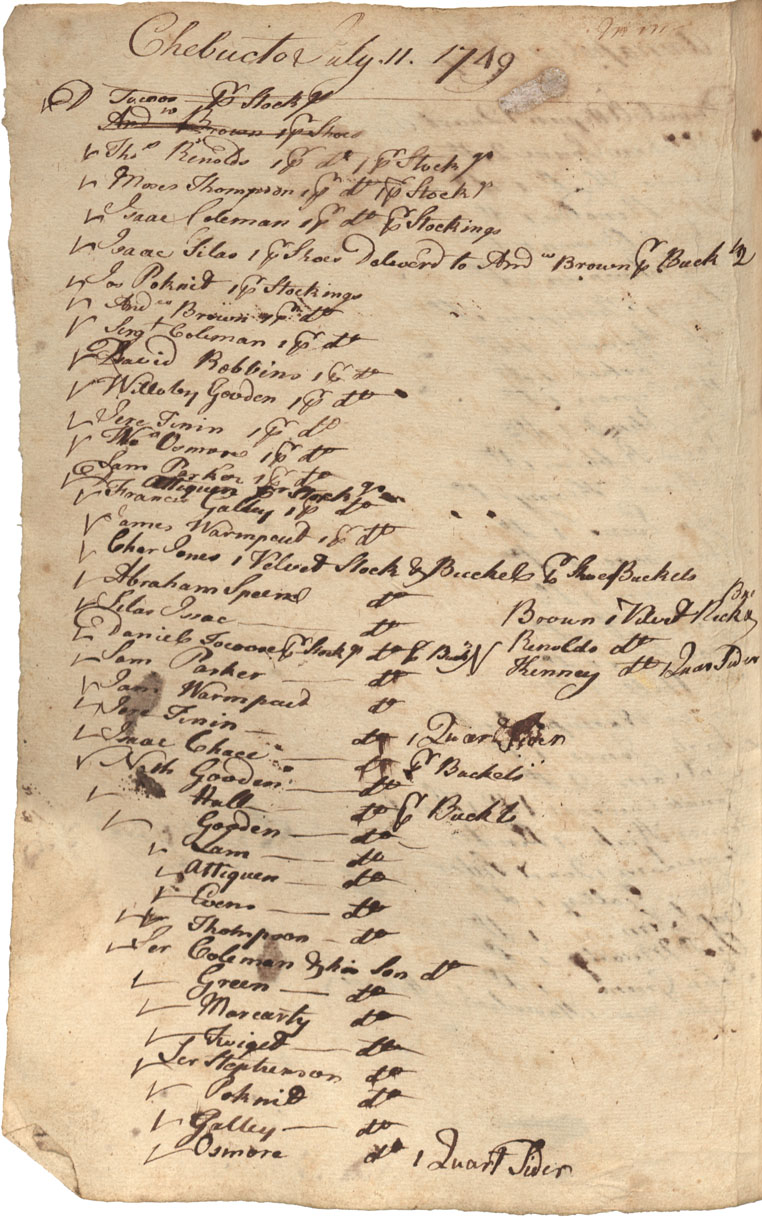 Chebucto July. 11. 1749
D Tocoos pr Stockgs
Andw Brown 1 pr Shoes
Thos Renolds 1 pr do 1 pr Stockgs
Moses Thompson 1 pr do 1 pr Stockgs
Isaac Coleman 1 pr do pr Stockings
Isaac Silas 1 pr Shoes Deleverd to Andw Brown pr Buck
Jos Poknit 1 pr Stockings
Andw Brown 1 pr do
Sergt Coleman 1 pr do
David Robbins 1 pr do
Willoby Gooden 1 pr do
Jere Tinin 1 pr do
Tho Osmore 1 pr do
Sam Parker 1 pr do
Attiquen pr Stockgs
Francis Galley 1 pr do
James Warmpeit 1 pr do
Cher Jones 1 Velvet Stock & Buckels pr Shoe Buckels
Abraham Speens do
Silas Isaac do
Brown 1 Velvet
Daniel Tocoose pr Stockgs do pr Bucks
Renolds do
Sam Parker do
Kenney do 1 Quart Sider
Jam Warmpeit do
Jere Tinin
Isaac Chace do 1 Quart Sider
Nath Gooden do pr Buckels
Hall do pr Buckls
Gooden do
Lam do
Attiquen do
Evens do
Thompson do
Ser Coleman & his Son do
Green do
Morearty do
Twiget do
Ser Stephenson do
Poknit do
Galley do
Osmore do 1 Quart Sider